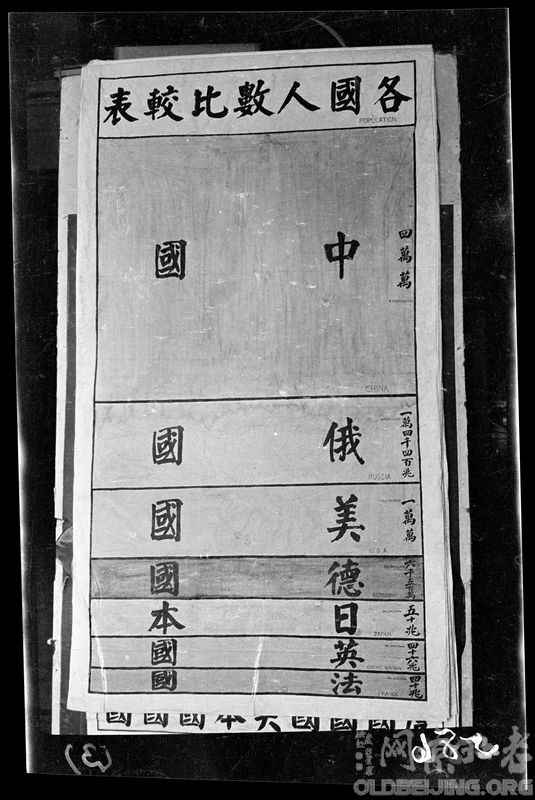 各國人數比較表
POPULATION
中國
四萬萬
CHINA
俄國
一萬四千四百兆
RUSSIA
美國
一萬萬
U.S.A.
德國
六千五百萬
GERMANY
日本
五十兆
JAPAN
英國
四十六兆
GREAT BRITAIN
法國
四十兆
FRANCE
(3)
老北京网
OLDBEIJING.ORG